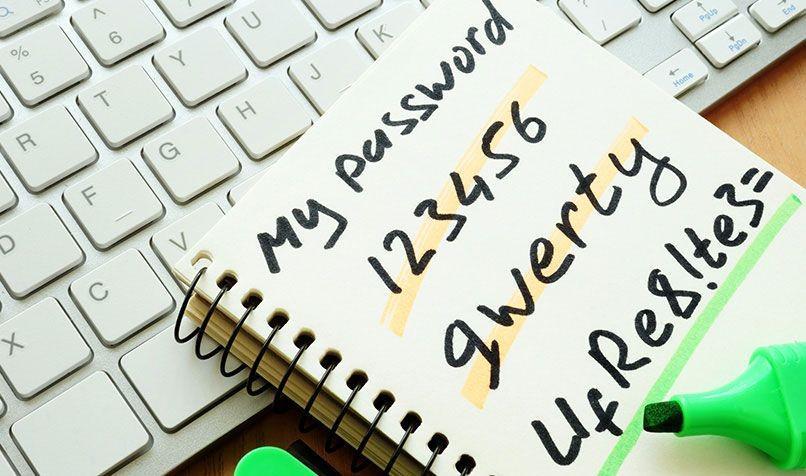 My password
123456
qwerty
UfRe8!te3=
^
6
%
5
Y
U
K
T
H
J
R
G
F
D
V
C
X
PgUp
End
PgDn
Home